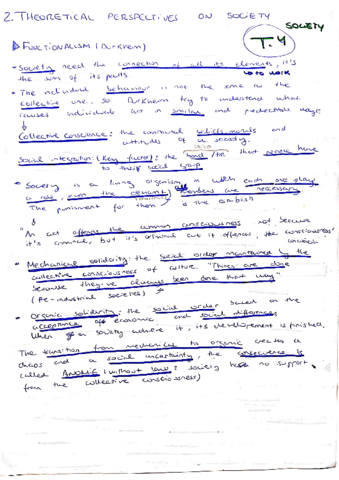 2. THEORETICAL PERSPECTIVES ON SOCIETY
SOCIETY
T.4
FUNCTIONALISM (Durkheim)
• Society need the connection of all its elements, it's to work
the sum of its parts
• The individual behaviour is not the same as the
collective one. So Durkheim try to understand what
causes individuals act in similar and predictable ways.
Collective conscience: the continued beliefs, morals and
attitudes of a society.
Social integration: (key factor): the bond / tie that people have
to their social group
• Society is a living organism in which each one play
a role, even the criminals members are necessary
The punishment for them is the
"An act offends the common consciousness not because
it's criminal, but it's criminal cut it offences the consciousness"
• Mechanical solidarity: the social order maintained by the
collective consciousness of culture. "Things are done
because they've always been done that way"
(Pre-industrial societies)
• Organic solidarity: the social order based on the
acceptance off economic and social differences
When a society achieve it, its development is finished.
The transition from mechanical to organic creates a
chaos and a social uncertainty, the consequence is
called ANOMIE (without laws: society has no support
from the collective consciousness)